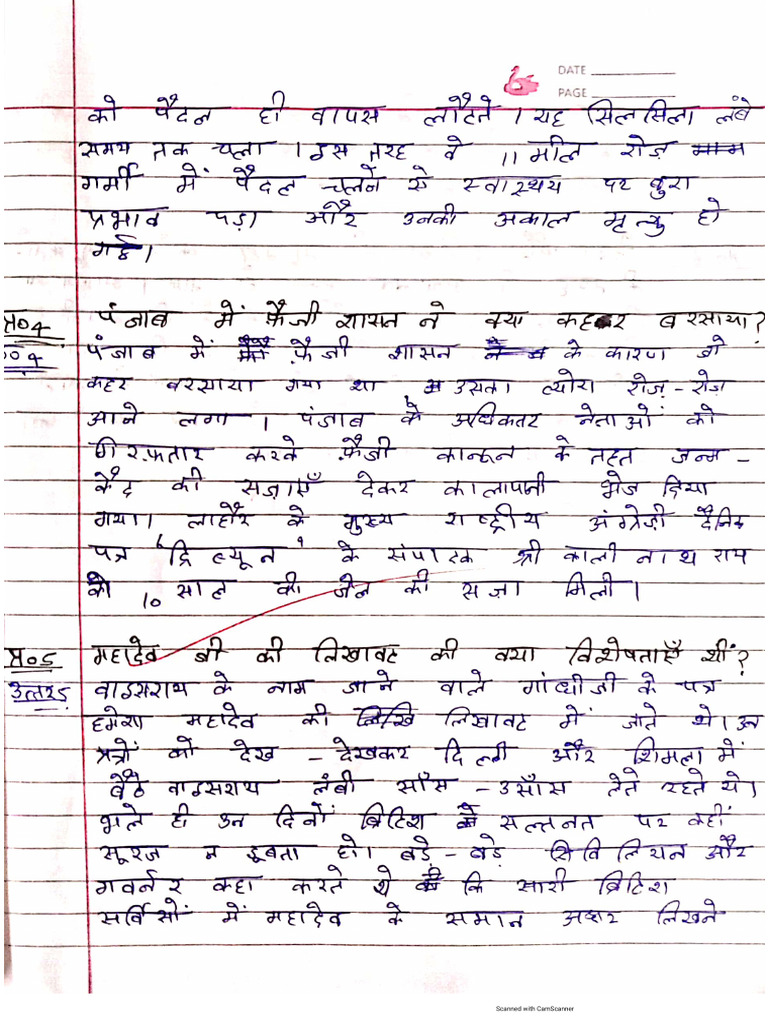 DATE
PAGE
को पैदल ही वापस लौटते। यह सिलसिला लंबे
समय तक चला। इस तरह वे 11 मील रोज़
गर्मी में पैदल चलने से स्वास्थय पर बुरा
प्रभाव पड़ा और उनकी अकाल मृत्यु हो
गई।
प्र०4 पंजाब में फ़ौजी शासन ने क्या कहर बरसाया?
उ०4 पंजाब में फ़ौजी शासन के कारण जो
कहर बरसाया गया था उसका ब्योरा रोज़-रोज़
आने लगा। पंजाब के अधिकतर नेताओं को
गिरफ़तार करके फ़ौजी कानून के तहत जन्म-
कैद की सज़ाएँ देकर कालापानी भेज दिया
गया। लाहौर के मुख्य राष्ट्रीय अंग्रेज़ी दैनिक
पत्र 'ट्रिब्यून' के संपादक श्री काली नाथ राय
को 10 साल की जेल की सजा मिली।
प्र०5 महादेव जी की लिखावट की क्या विशेषताएँ थीं?
उत्तर5 वाइसराय के नाम जाने वाले गांधीजी के पत्र
हमेशा महादेव की लिखावट में जाते थे। उन
पत्रों को देख-देखकर दिल्ली और शिमला में
बैठे वाइसराय लंबी साँस-उसाँस लेते रहते थे।
भले ही उन दिनों ब्रिटिश सल्तनत पर कहीं
सूरज न डूबता हो। बड़े-बड़े सिविलियन और
गवर्नर कहा करते थे कि सारी ब्रिटिश
सर्विसों में महादेव के समान अक्षर लिखने
Scanned with CamScanner